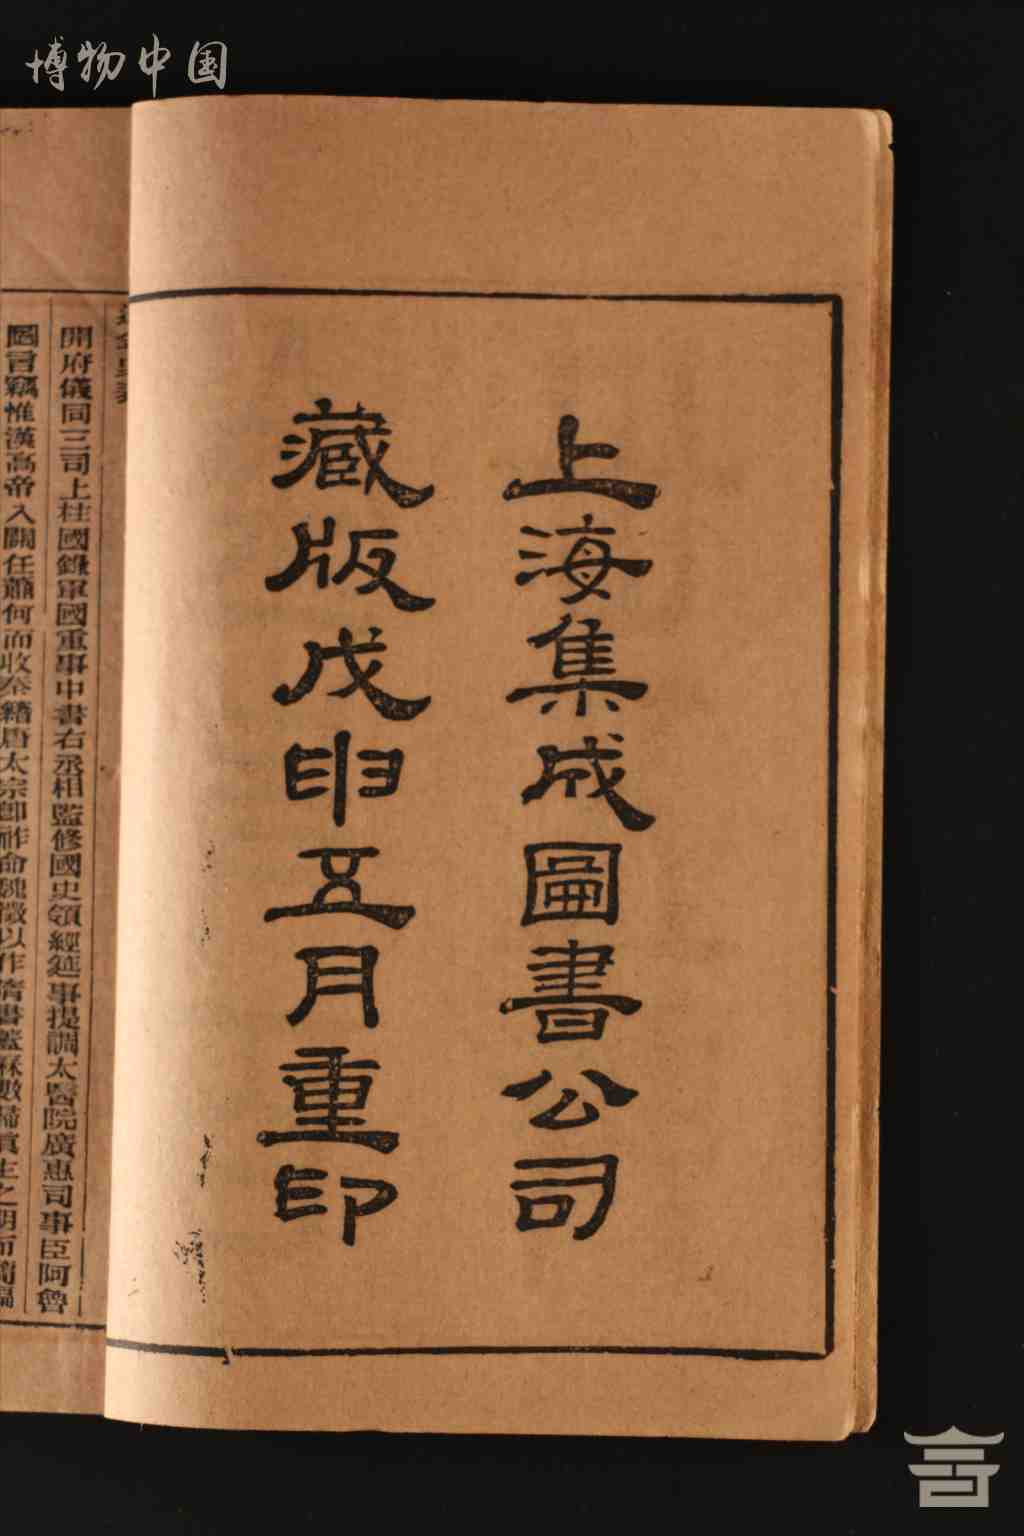 博物中国
上海集成圖書公司
藏版戊申五月重印
進金史表
開府儀同三司上柱國錄軍國重事中書右丞相監修國史領經筵事提調太醫院廣惠司事臣阿魯
圖言竊惟漢高帝入關任蕭何而收秦籍唐太宗即祚命魏徵以作隋書蓋厤數歸眞主之朝而簡編